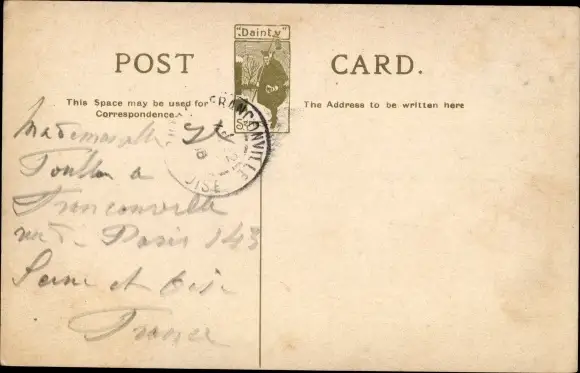 "Dainty"
POST CARD.
This Space may be used for
Correspondence.
The Address to be written here
FRANCONVILLE
OISE
Mademoiselle
Toullon a
Franconville
Paris 143
Seine et Oise
France